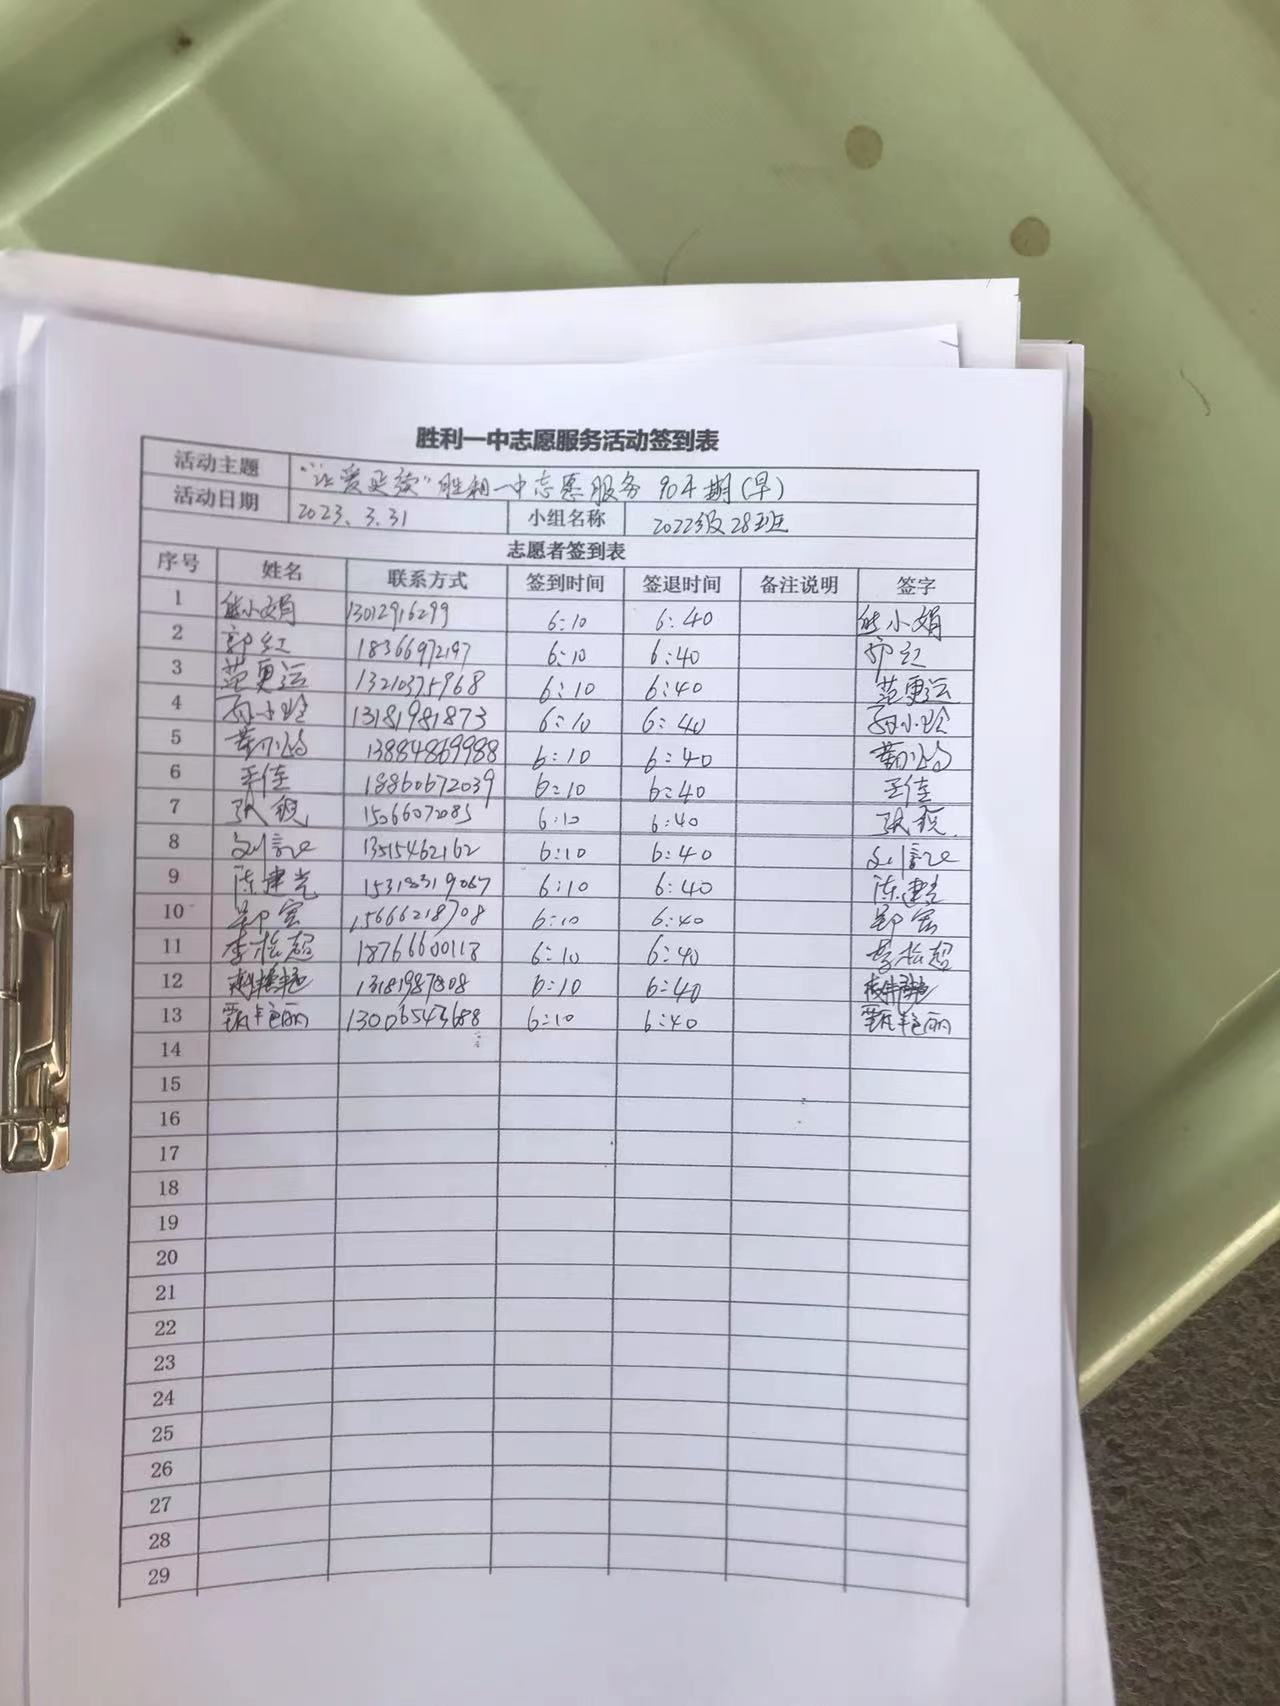 胜利一中志愿服务活动签到表
活动主题 "让爱延续"胜利一中志愿服务904期(早)
活动日期 2023.3.31 小组名称 2022级28班
志愿者签到表
序号 姓名 联系方式 签到时间 签退时间 备注说明 签字
1 熊小娟 13012916299 6:10 6:40 熊小娟
2 郭红 18366972197 6:10 6:40 郭红
3 范更运 13210375968 6:10 6:40 范更运
4 13181981873 6:10 6:40
5 13884869988 6:10 6:40
6 王佳 18860672039 6:10 6:40 王佳
7 15066072085 6:10 6:40
8 13515462162 6:10 6:40
9 陈建光 15318319067 6:10 6:40 陈建光
10 郑宏 15666218708 6:10 6:40 郑宏
11 李松超 18766600118 6:10 6:40 李松超
12 13181987808 6:10 6:40
13 甄艳丽 13006543688 6:10 6:40 甄艳丽
14
15
16
17
18
19
20
21
22
23
24
25
26
27
28
29